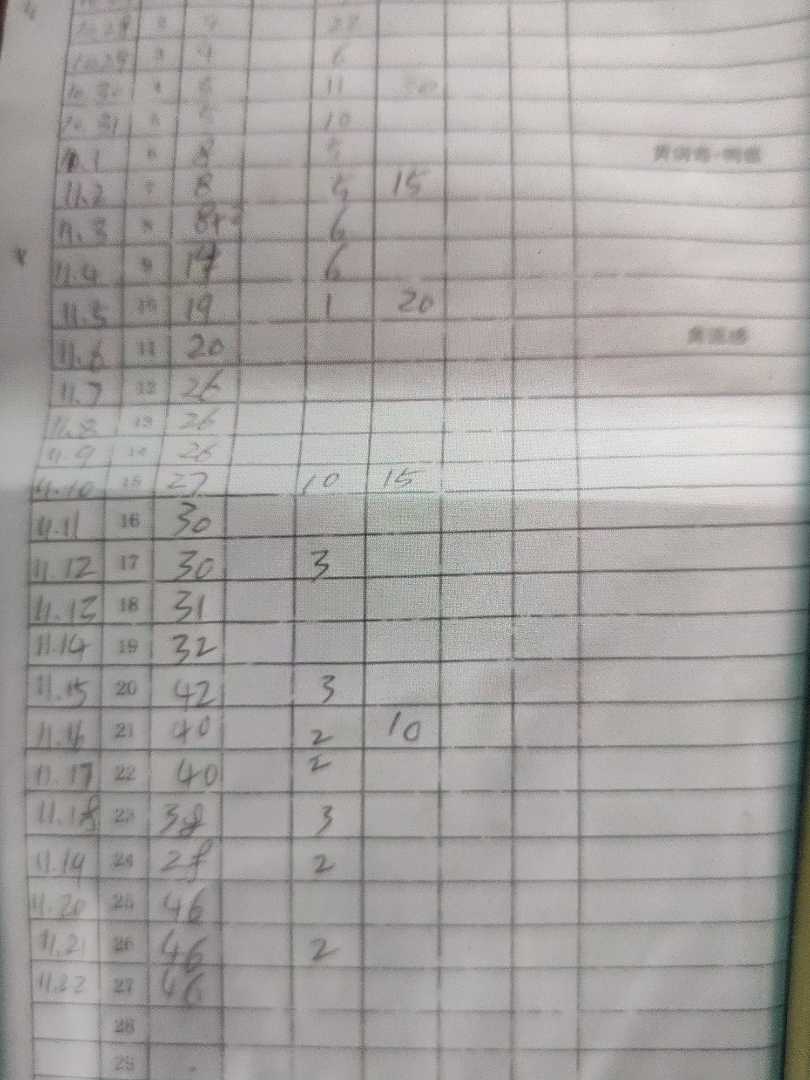 10.29 3 4 6
10.30 4 11
10.31 5 10
11.1 6 8 5
11.2 7 8 5 15
11.3 8 6
11.4 9 6
11.5 10 19 1 20
11.6 11 20
11.7 12 26
11.8 13 26
11.9 14 26
11.10 15 27 10 15
11.11 16 30
11.12 17 30 3
11.13 18 31
11.14 19 32
11.15 20 42 3
11.16 21 40 2 10
11.17 22 40 2
11.18 23 38 3
11.19 24 28 2
11.20 25 46
11.21 26 46 2
11.22 27 46
28
29